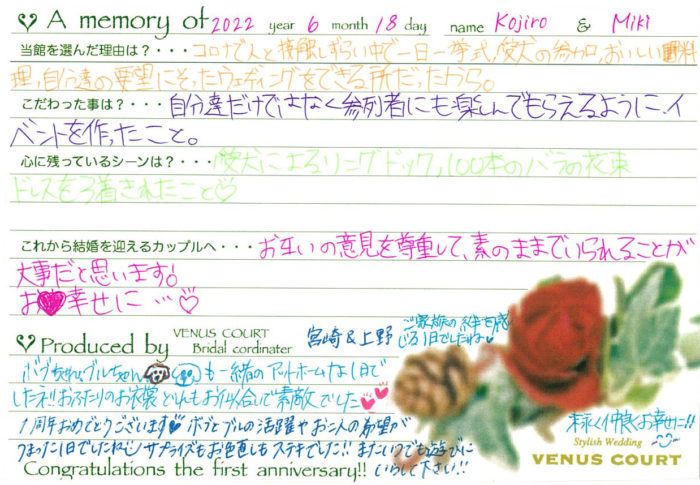 A memory of 2022 year 6 month 18 day name Kojiro & Miki
当館を選んだ理由は？・・・コロナで人と接触しずらい中で一日一挙式,愛犬の参加,おいしい料
理,自分達の要望にそったウェディングをできる所だったから。
こだわった事は？・・・自分達だけではなく参列者にも楽しんでもらえるように.イ
ベントを作ったこと。
心に残っているシーンは？・・・愛犬によるリングドック,100本のバラの花束
ドレスを3着きれたこと♡
これから結婚を迎えるカップルへ・・・お互いの意見を尊重して、素のままでいられることが
大事だと思います!
お幸せに…♡
Produced by VENUS COURT Bridal cordinater 宮崎&上野
ご家族の絆を感
じる1日でしたね♥
ボブちゃん,ブルちゃんも一緒のアットホームな1日で
したネ!!おふたりのお衣裳どれもお似合いで素敵でした
1周年おめでとうございます♥ボブとブルの活躍やお二人の希望が
つまった1日でしたね サプライズもお色直しもステキでした!! またいつでも遊びに
いらして下さい!!
末永く仲良くお幸せに!!
Stylish Wedding
VENUS COURT
Congratulations the first anniversary!!